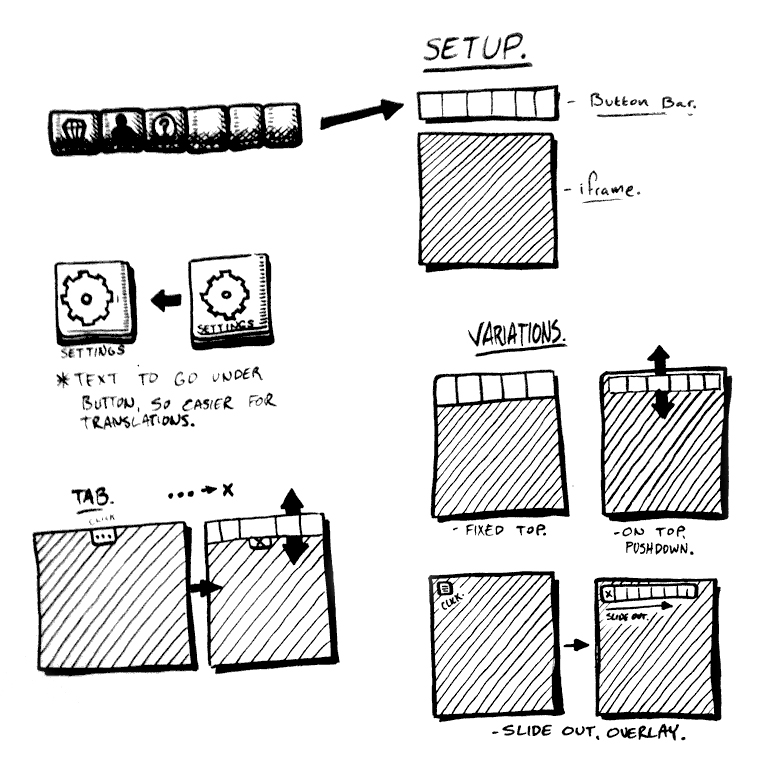 SETUP.
- Button Bar.
?
- iframe.
SETTINGS
SETTINGS
* TEXT TO GO UNDER
BUTTON, SO EASIER FOR
TRANSLATIONS.
VARIATIONS.
- FIXED TOP.
- ON TOP,
PUSHDOWN.
TAB.
... → X
CLICK
...
X
CLICK.
X
SLIDE OUT.
- SLIDE OUT, OVERLAY.